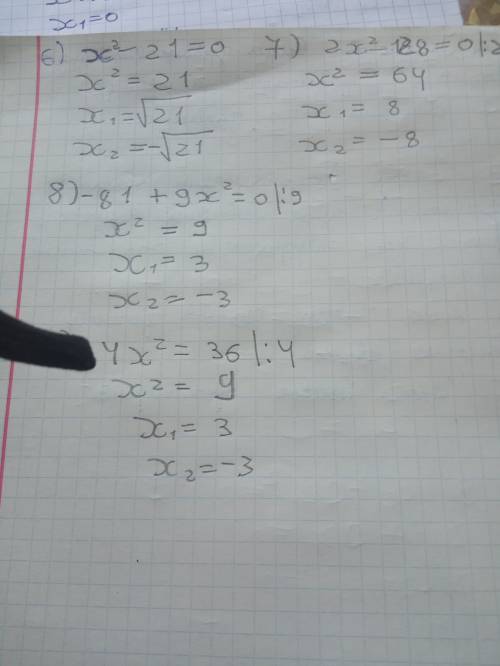 x₁=0
6) x²-21=0
x²=21
x₁=√21
x₂=-√21
7) 2x²-128=0|:2
x²=64
x₁=8
x₂=-8
8)-81+9x²=0|:9
x²=9
x₁=3
x₂=-3
4x²=36|:4
x²=9
x₁=3
x₂=-3